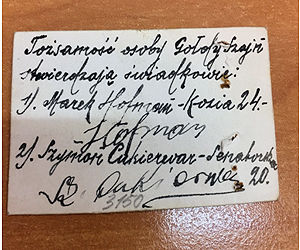 Tożsamość osoby Gołdy Szajn
stwierdzają świadkowie:
1/. Marek Hofman - Kozia 24.-
Hofman
2/. Szymon Cukierwar - Senatorska
20.
3150